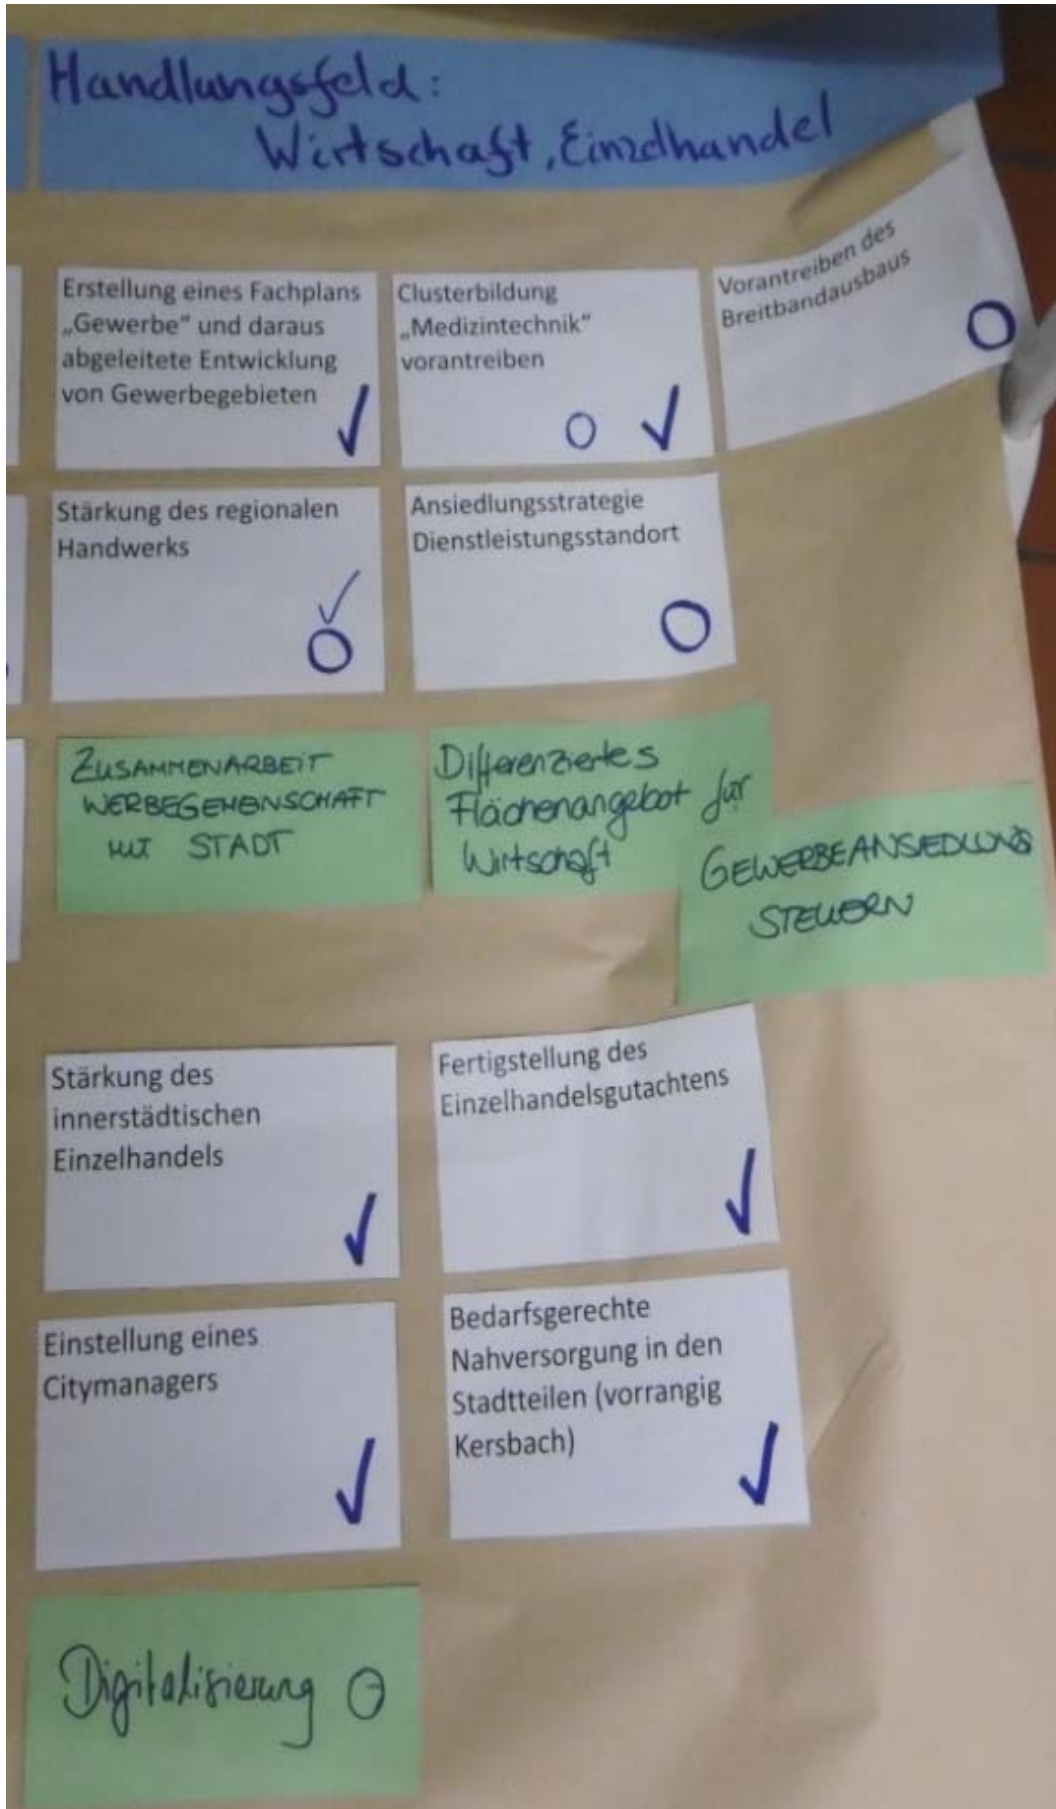 Handlungsfeld:
Wirtschaft, Einzelhandel
Erstellung eines Fachplans
„Gewerbe“ und daraus
abgeleitete Entwicklung
von Gewerbegebieten
Clusterbildung
„Medizintechnik“
vorantreiben
Vorantreiben des
Breitbandausbaus
Stärkung des regionalen
Handwerks
Ansiedlungsstrategie
Dienstleistungsstandort
ZUSAMMENARBEIT
WERBEGEMEINSCHAFT
MIT STADT
Differenziertes
Flächenangebot für
Wirtschaft
GEWERBEANSIEDLUNG
STEUERN
Stärkung des
innerstädtischen
Einzelhandels
Fertigstellung des
Einzelhandelsgutachtens
Einstellung eines
Citymanagers
Bedarfsgerechte
Nahversorgung in den
Stadtteilen (vorrangig
Kersbach)
Digitalisierung